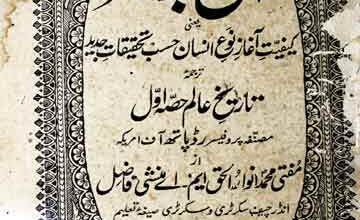 یعنی
کیفیت آغاز نوع انسان حسب تحقیقات جدید
ترجمہ
تاریخ عالم حصہ اول
مصنفہ پروفیسر رڈپاتھ آف امریکہ
از
مفتی محمد انوار الحق ایم۔ اے منشی فاضل
انڈر چیف سکرٹری و سکرٹری صیغہ تعلیم